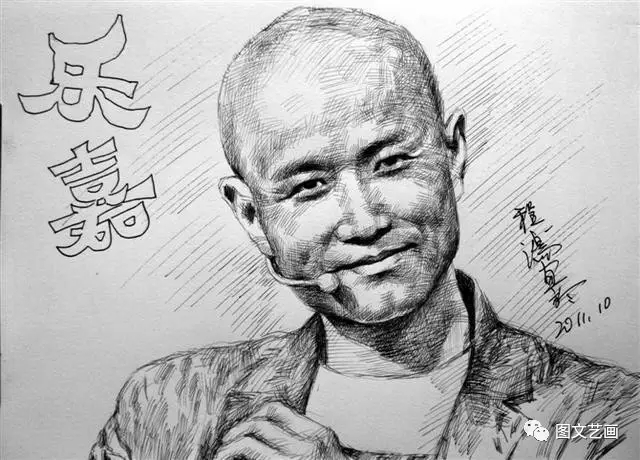 乐嘉
2011.10
图文艺画